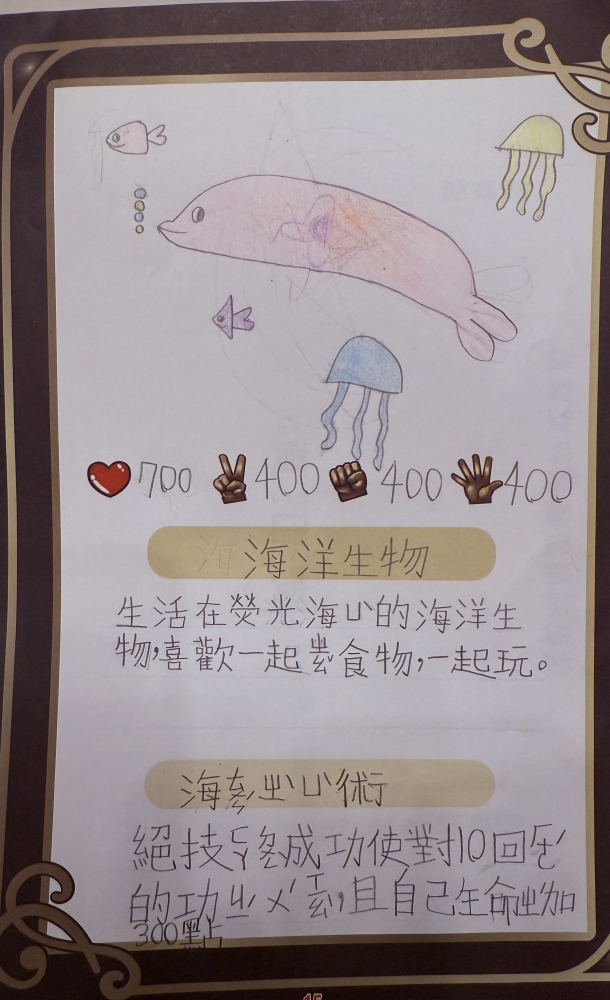 700 400 400 400
海洋生物
生活在熒光海ㄩ的海洋生
物,喜歡一起食物,一起玩。
海術
絕技成功使對10回
的功,且自己生命加
300點